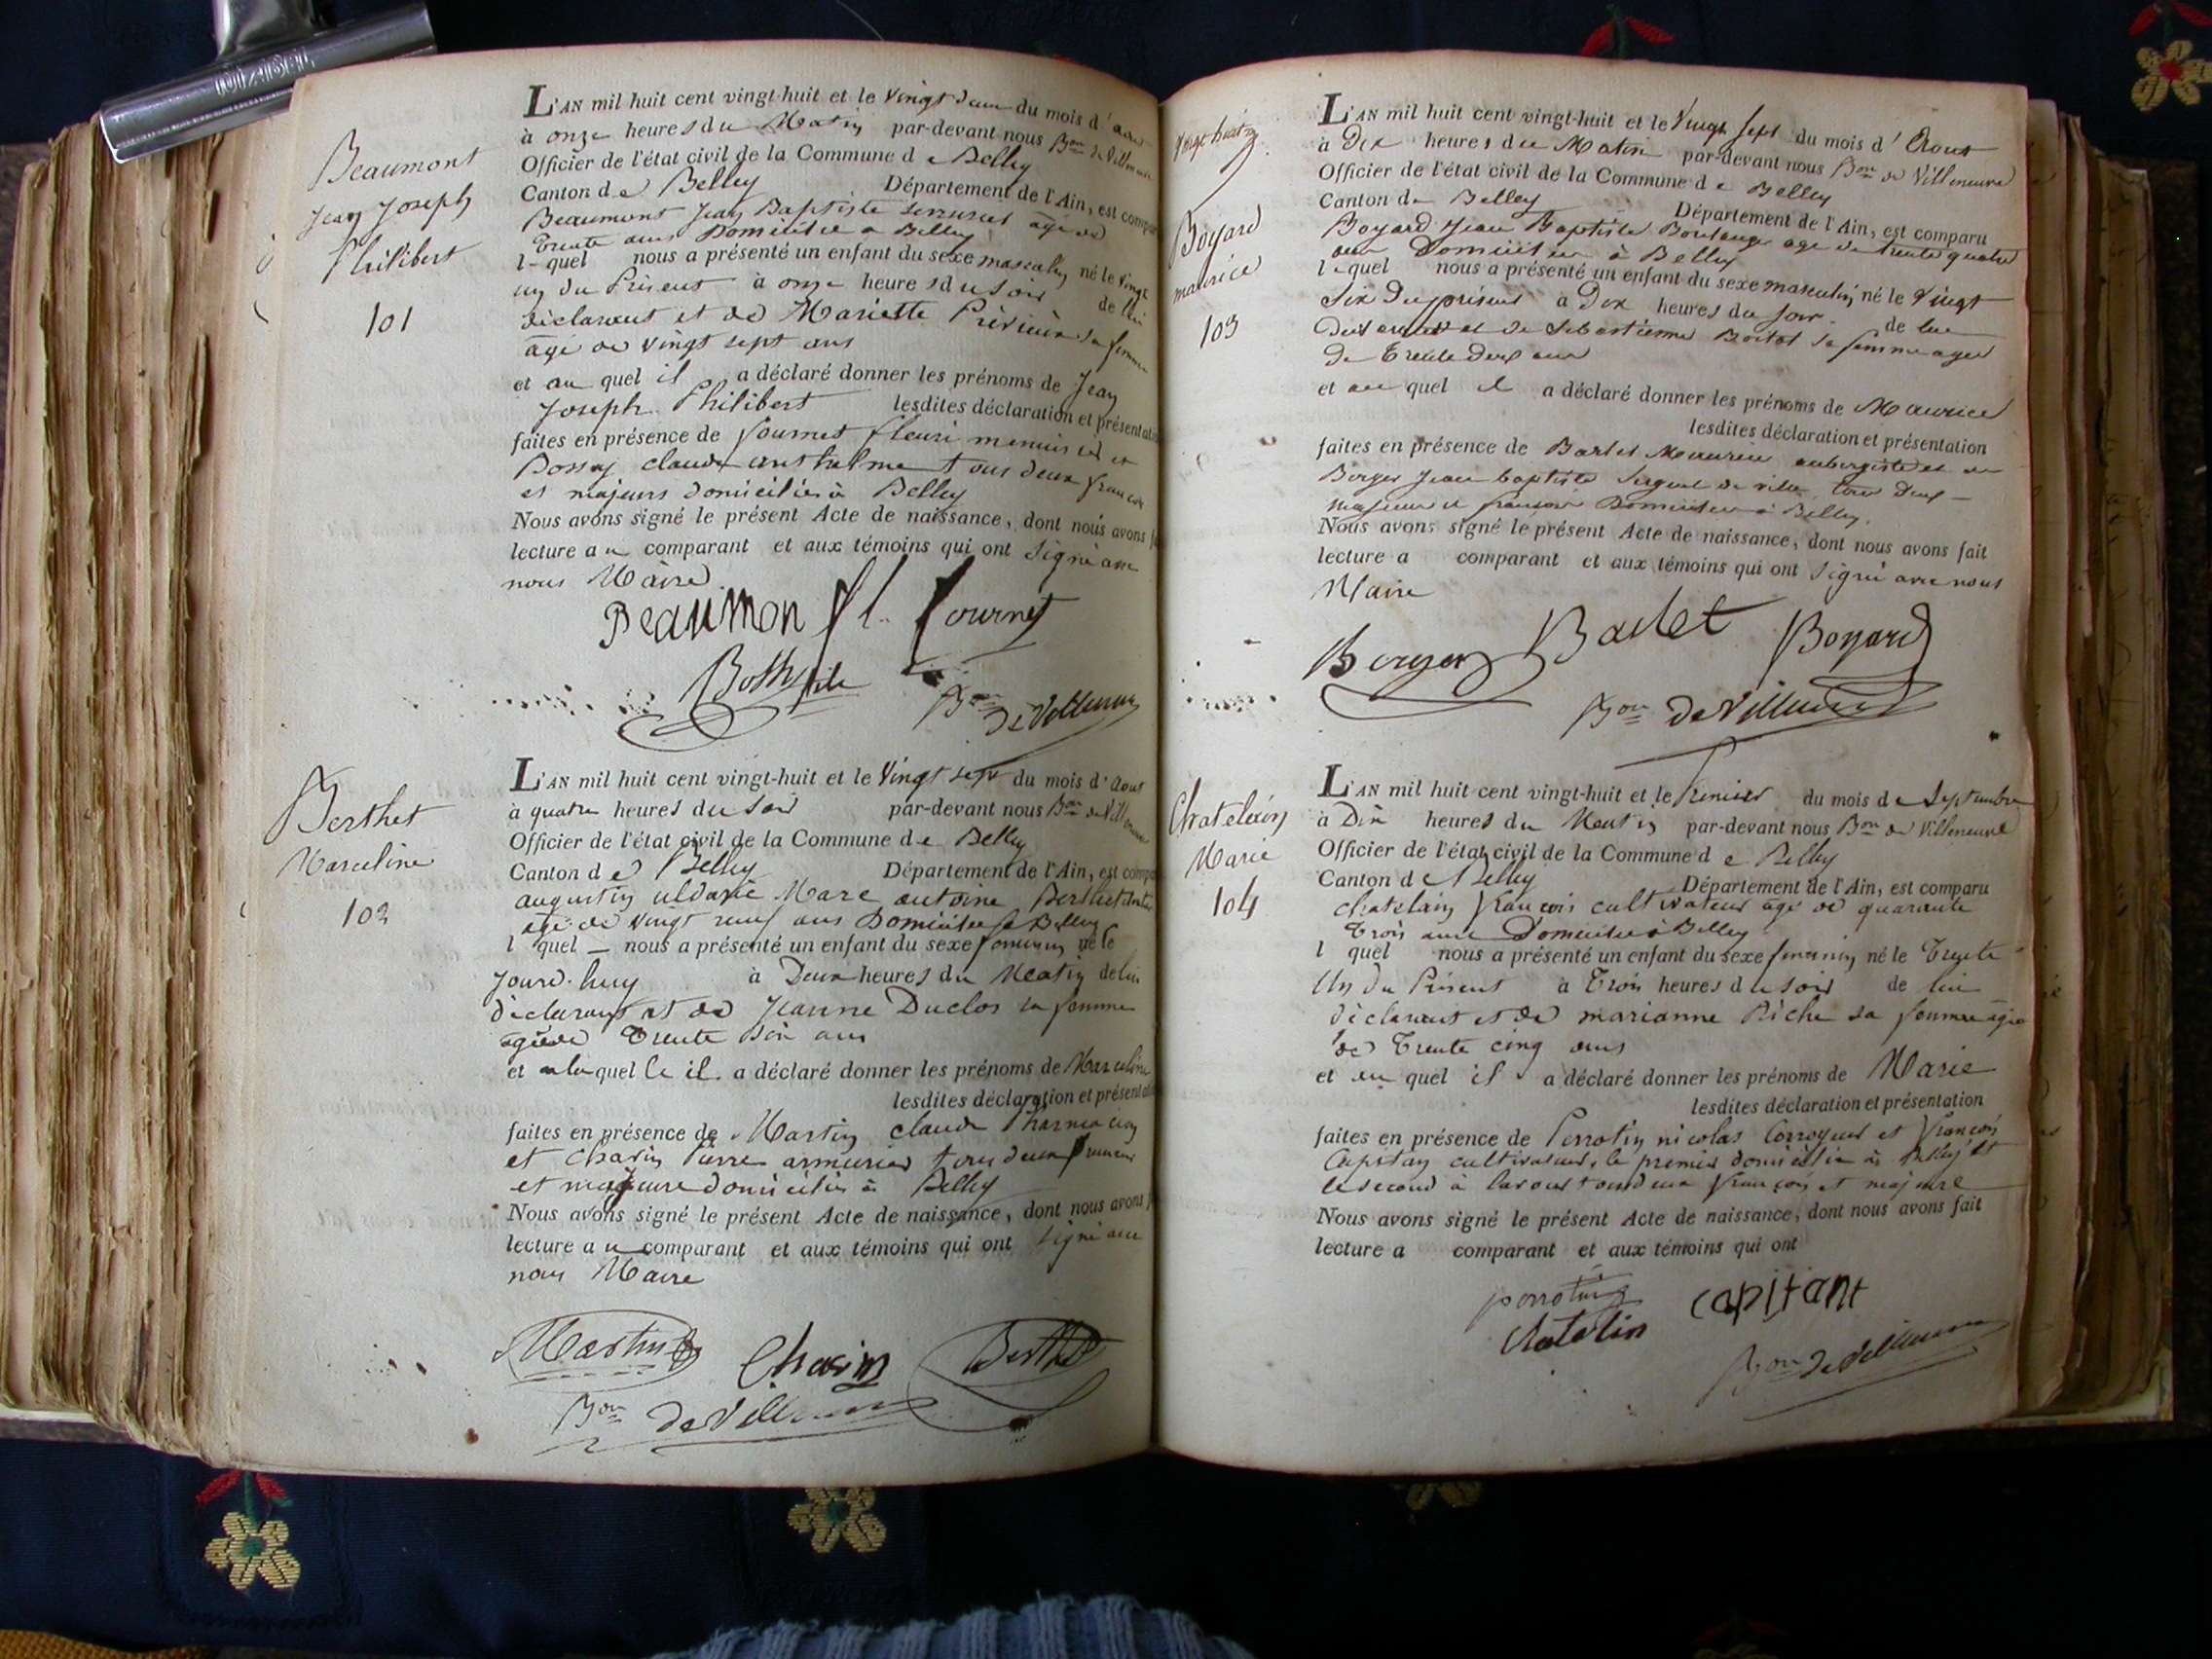 Beaumont
Jean Joseph
Philibert
101
L'AN mil huit cent vingt-huit et le Vingt deux du mois d'
à onze heures du Matin par-devant nous Bon de
Officier de l'état civil de la Commune de Belley
Canton de Belley Département de l'Ain, est
Beaumont Jean Baptiste serrurier âgé de
Trente ans Domicilié a Belley
lequel nous a présenté un enfant du sexe masculin né le vingt
un du Présent à onze heures du soir de lui
déclarant et de Mariette sa femme
âgé de vingt sept ans
et au quel il a déclaré donner les prénoms de Jean
Joseph Philibert lesdites déclaration et
faites en présence de fournet fleuri menuisier et
claude anthelme tous deux français
et majeurs domiciliés à Belley
Nous avons signé le présent Acte de naissance, dont nous avons
lecture au comparant et aux témoins qui ont signé avec
nous Maire
Beaumon fl. fournet
Bon de Villeneuve
Berthet
Marceline
102
L'AN mil huit cent vingt-huit et le Vingt sept du mois d'aout
à quatre heures du soir par-devant nous Bon de
Officier de l'état civil de la Commune de Belley
Canton de Belley Département de l'Ain, est
augustin uldaric Marc antoine Berthet
âgé de vingt neuf ans Domicilié a Belley
l quel nous a présenté un enfant du sexe féminin né le
jourd-huy à Deux heures du Matin de lui
déclarant et de Jeanne Duclos sa femme
âgée de Trente Six ans
et a laquelle il a déclaré donner les prénoms de Marceline
lesdites déclaration et
faites en présence de Martin claude Pharmacien
et Charin Pierre armurier tous deux
et majeurs domiciliés à Belley
Nous avons signé le présent Acte de naissance, dont nous avons
lecture au comparant et aux témoins qui ont signé avec
nous Maire
Martin Charin Berthet
Bon de Villeneuve
Boyard
maurice
103
L'AN mil huit cent vingt-huit et le Vingt sept du mois d'Aout
à Dix heures du Matin par-devant nous Bon de Villeneuve
Officier de l'état civil de la Commune de Belley
Canton de Belley Département de l'Ain, est comparu
Boyard Jean Baptiste Boulanger age de trente quatre
ans Domicilié à Belley
lequel nous a présenté un enfant du sexe masculin né le Vingt
Six Du présent à Dix heures du soir de lui
Declarant et de Sebastienne sa femme agée
De Trente Deux ans
et au quel il a déclaré donner les prénoms de Maurice
lesdites déclaration et présentation
faites en présence de Barlet Maurice aubergiste et de
Berger Jean baptiste Sergent de ville tous Deux
majeurs et français Domiciliés à Belley
Nous avons signé le présent Acte de naissance, dont nous avons fait
lecture a comparant et aux témoins qui ont signé avec nous
Maire
Berger Barlet Boyard
Bon de Villeneuve
Chatelain
Marie
104
L'AN mil huit cent vingt-huit et le Premier du mois de Septembre
à Dix heures du Matin par-devant nous Bon de Villeneuve
Officier de l'état civil de la Commune de Belley
Canton de Belley Département de l'Ain, est comparu
chatelain françois cultivateur âgé de quarante
Trois ans Domicilié à Belley
l quel nous a présenté un enfant du sexe feminin né le Trente
Un Du Présent à Trois heures du soir de lui
déclarant et de marianne Riche sa femme âgée
de Trente cinq ans
et au quel il a déclaré donner les prénoms de Marie
lesdites déclaration et présentation
faites en présence de Perrotin nicolas Corroyeur et françois
Capitan cultivateur, le premier domicilié à Belley et
le second à tous deux français et majeurs
Nous avons signé le présent Acte de naissance, dont nous avons fait
lecture a comparant et aux témoins qui ont
perrotin capitant
Chatelin
Bon de Villeneuve